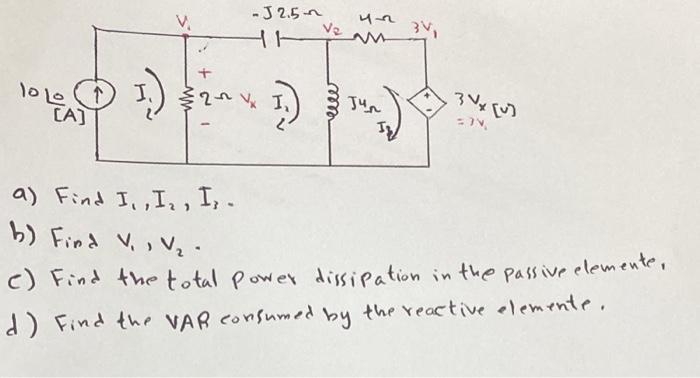 -J2.5Ω
4Ω
V1
V2
3V1
10∠0
[A]
I1
+
2Ω
Vx
-
I1
J4Ω
+
-
3Vx [V]
= 3V1
a) Find I1, I2, I3.
b) Find V1, V2.
c) Find the total power dissipation in the passive elemente,
d) Find the VAR consumed by the reactive elemente.